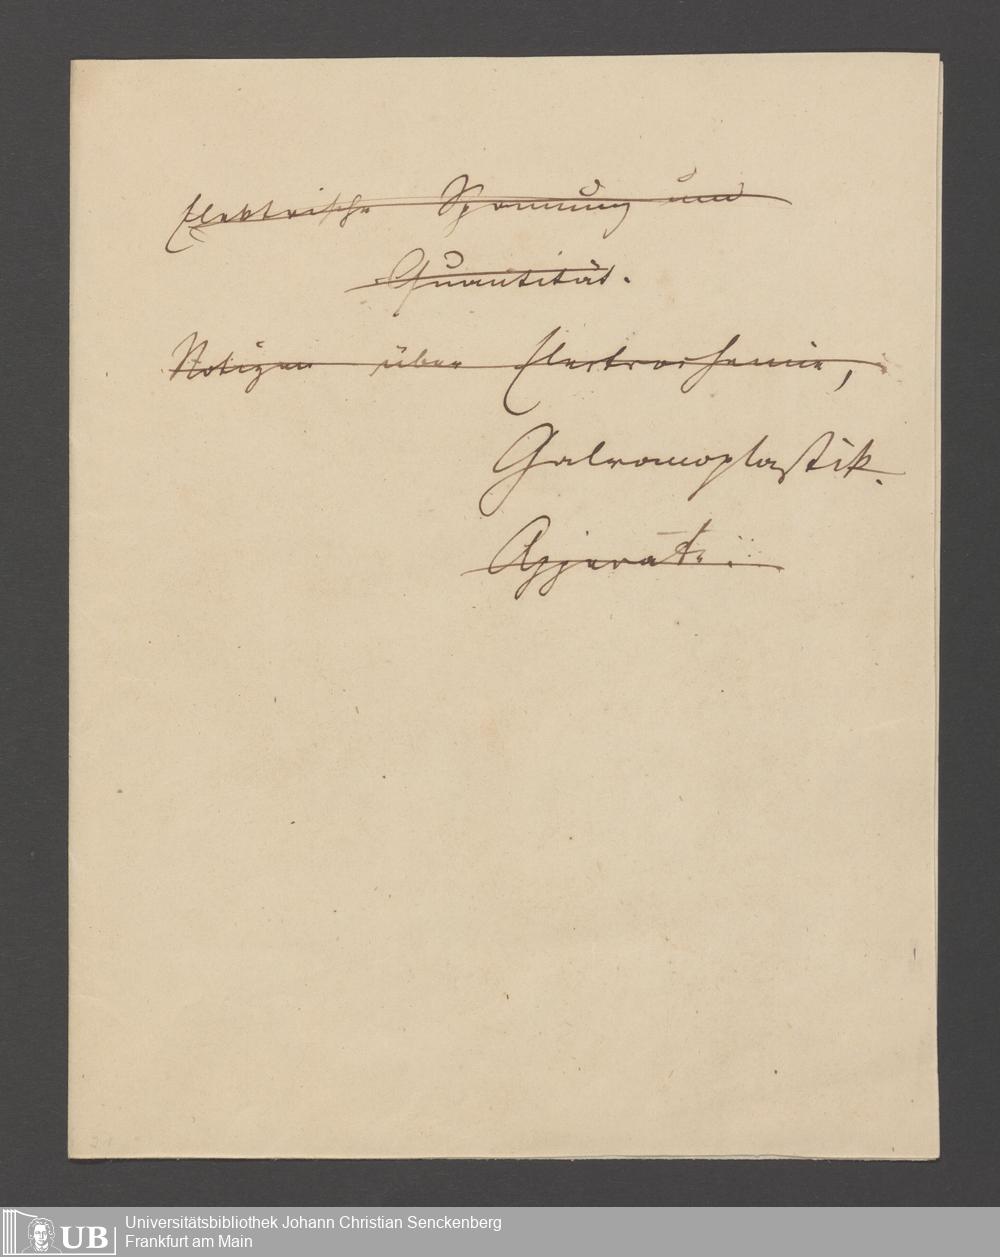 Elektrische Spannung und
Quantität.
Notizen über Electrochemie,
Galvanoplastik.
Apparate.
Universitätsbibliothek Johann Christian Senckenberg
Frankfurt am Main
UB